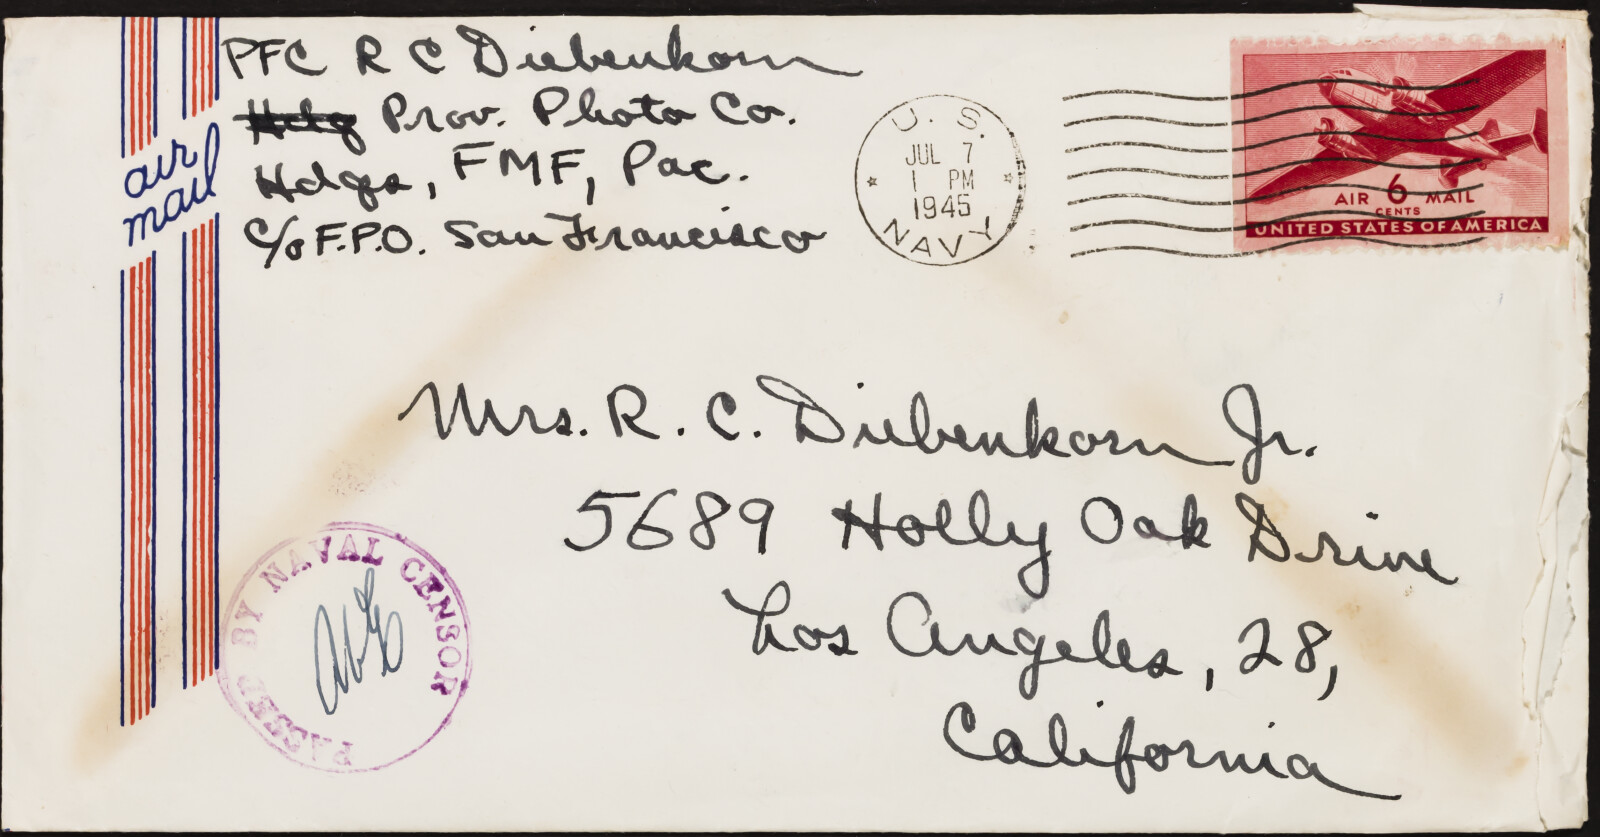 PFC R C Diebenkorn
Prov. Photo Co.
Hdqs, FMF, Pac.
c/o F.P.O. San Francisco
air
mail
U. S.
JUL 7
1 PM
1945
NAVY
AIR 6 MAIL
CENTS
UNITED STATES OF AMERICA
Mrs. R. C. Diebenkorn Jr.
5689 Holly Oak Drive
Los Angeles, 28,
California
PASSED BY NAVAL CENSOR